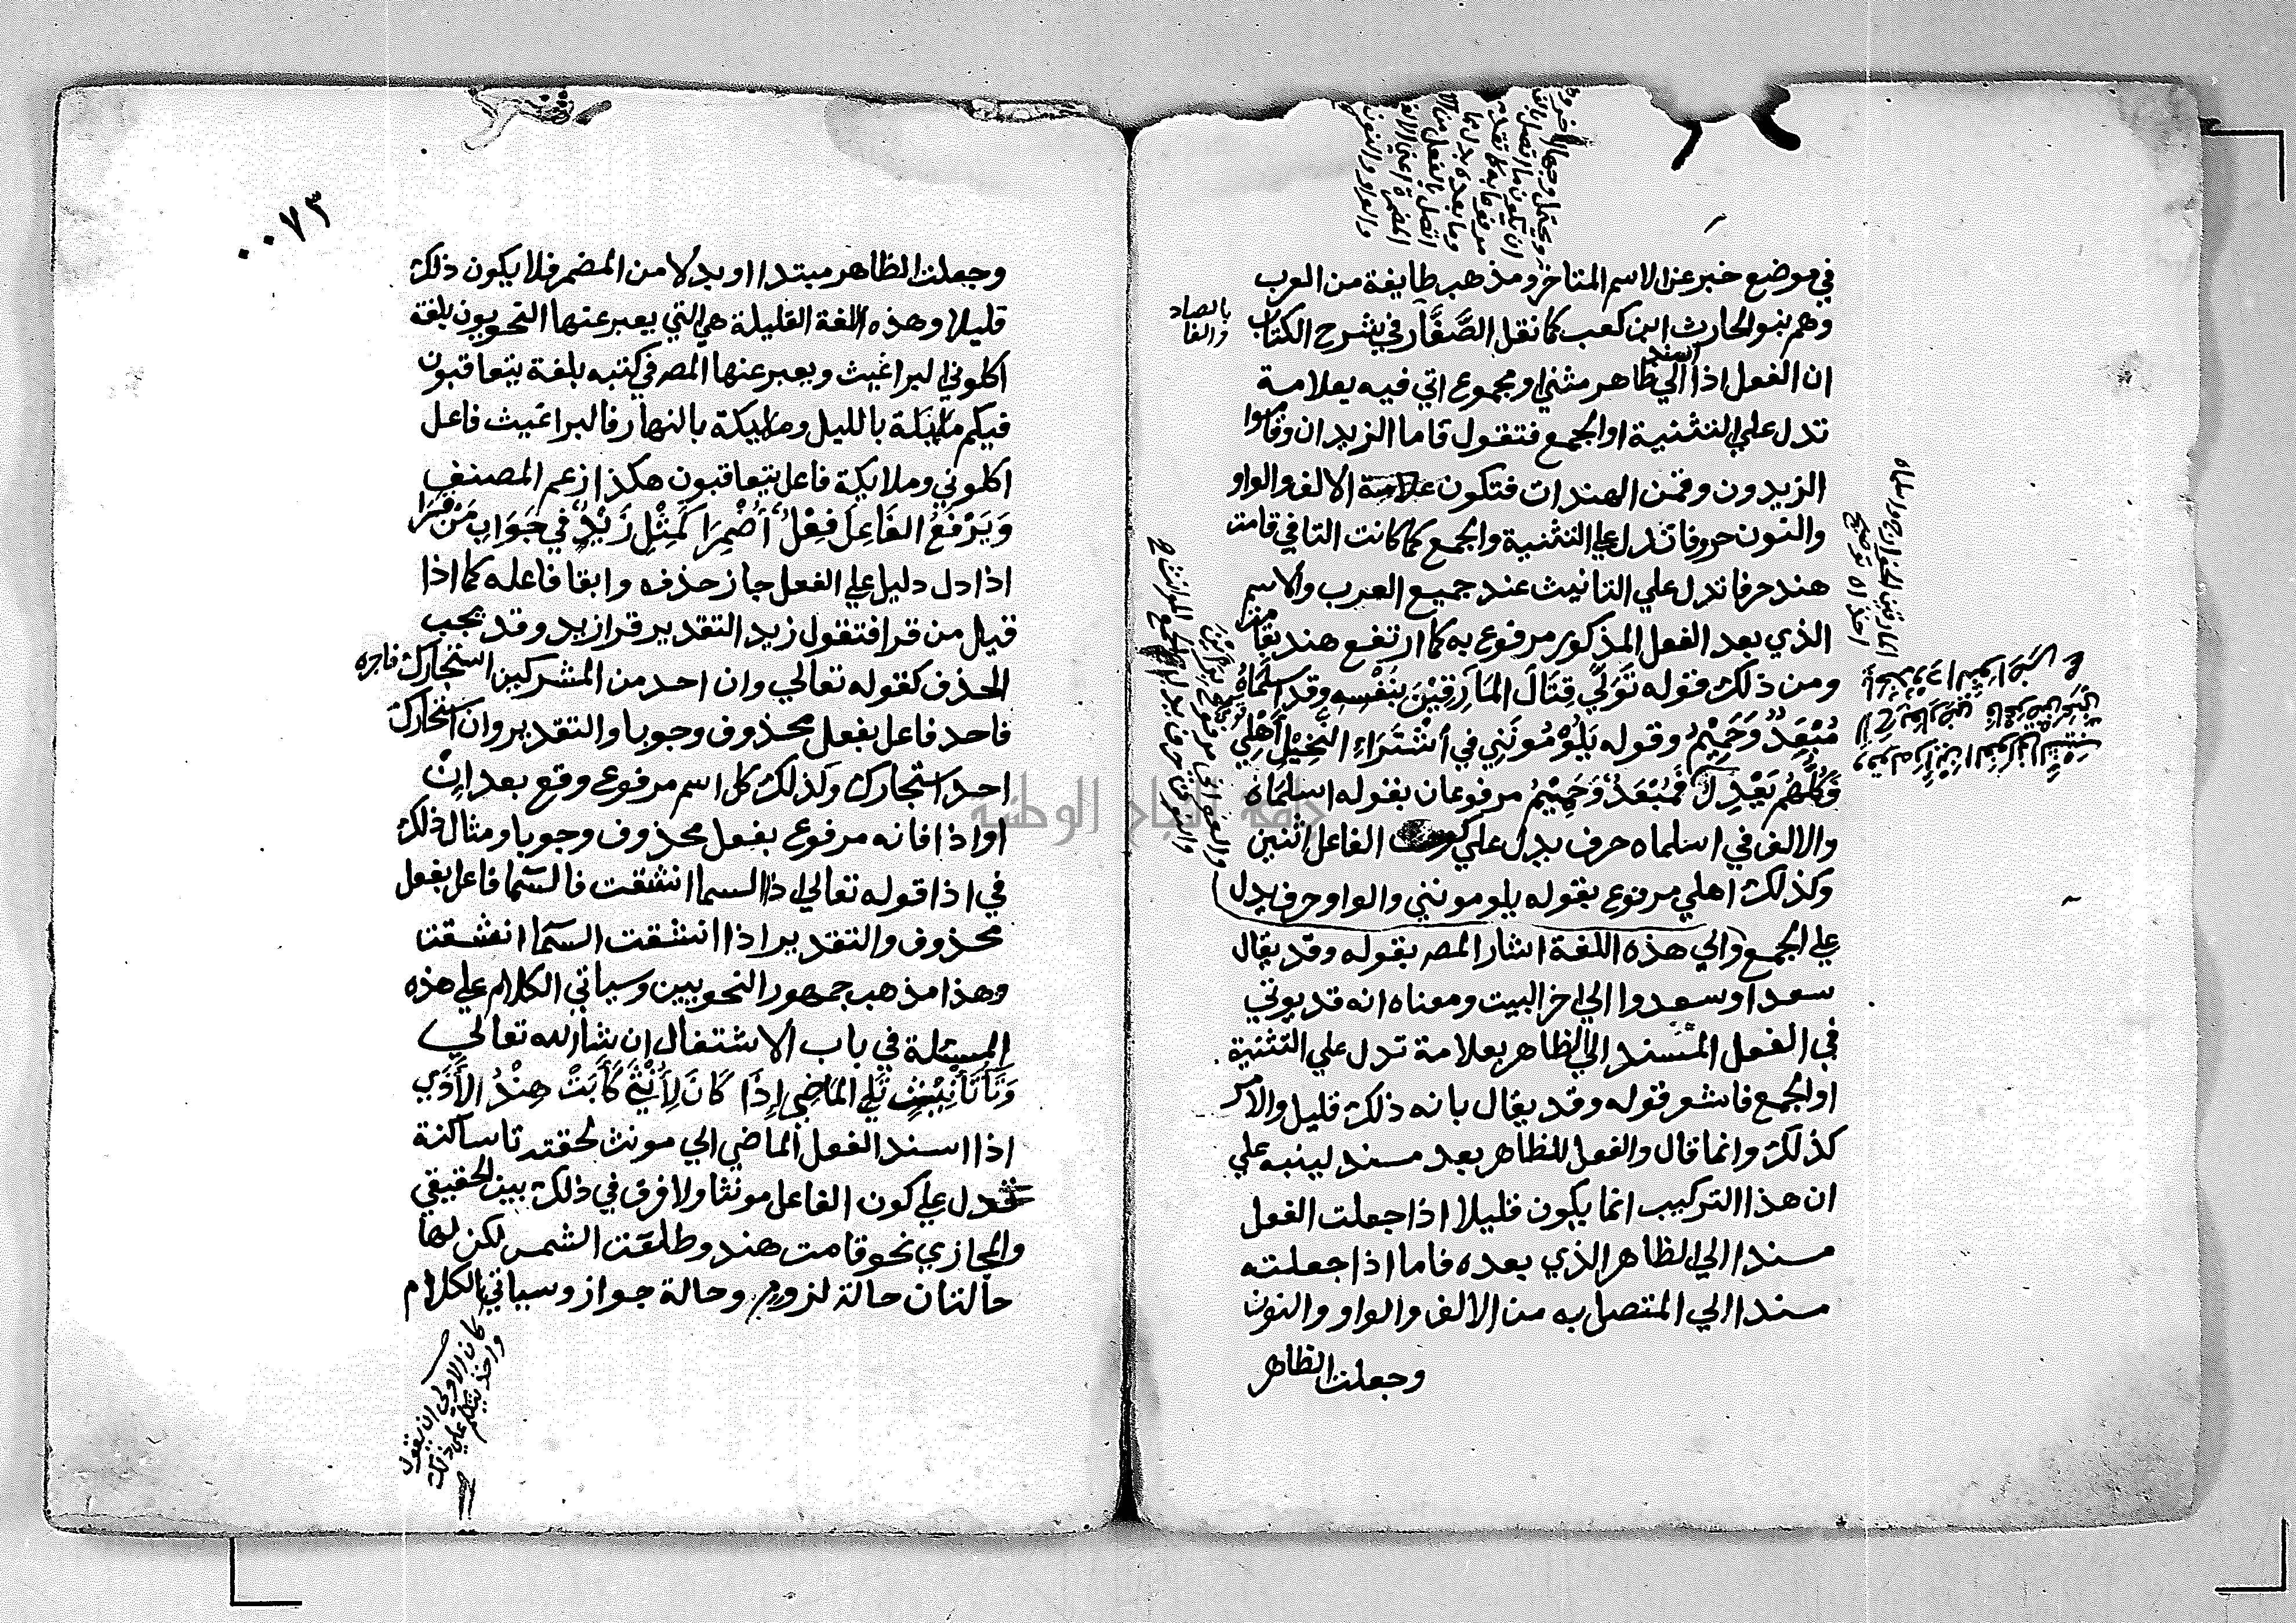 في موضع خبر عن الاسم المتاخر ومذهب طايفة من العرب
وهم بنو الحارث ابن كعب كما نقل الصَّفَّار في شرح الكتاب
بالصاد
والفا
ان الفعل اذا اسند الي ظاهر مثني او مجموع اتي فيه بعلامة
تدل علي التثنية او الجمع فتقول قاما الزيدان وقاموا
الزيدون وقمن الهندات فتكون علامة الالف والواو
والنون حروفا تدل علي التثنية والجمع كما كانت التا في قامت
هند حرفا تدل علي التانيث عند جميع العرب والاسم
الذي بعد الفعل المذكور مرفوع به كما ارتفع هند بقامت
ومن ذلك قوله تَوَلَّي قِتَالَ المَارِقِيْنَ بِنَفْسِه وقد اسلَمَاهُ
مُبْعَدٌ وَحَمِيْمُ وقوله يَلُوْمُونَنِي في اشْتَرَاءِ النَّخِيْلِ أَهْلِي
فَكُلُّهُم يَعْدِلُ فَمُبْعَدٌ وَحَمِيْمُ مرفوعان بقوله اسلماه
والالف في اسلماه حرف يدل علي كون الفاعل اثنين
وكذلك اهلي مرفوع بقوله يلومونني والواو حرف يدل
علي الجمع والي هذه اللغة اشار المصر بقوله وقد يقال
سعدا وسعدوا الي اخر البيت ومعناه انه قد يوتي
في الفعل المسند الي الظاهر بعلامة تدل علي التثنية
او الجمع فاشعر قوله وقد يقال بانه ذلك قليل والامر
كذلك وانما قال والفعل للظاهر بعد مسند لينبه علي
ان هذا التركيب انما يكون قليلا اذا جعلت الفعل
مسندا الي الظاهر الذي بعده فاما اذا جعلته
مسندا الي المتصل به من الالف والواو والنون
وجعلت الظاهر
٠٠٧٣
وجعلت الظاهر مبتدا او بدلا من المضمر فلا يكون ذلك
قليلا وهذه اللغة القليلة هي التي يعبر عنها النحويون بلغة
اكلوني البراغيث ويعبر عنها المصر في كتبه بلغة يتعاقبون
فيكم ملايكة بالليل وملايكة بالنهار فالبراغيث فاعل
اكلوني وملايكة فاعل يتعاقبون هكذا زعم المصنف
وَيَرْفَعُ الفَاعِلَ فِعْلٌ أُضْمِرَا كَمِثْلِ زَيْدٌ في جَوَابِ مَنْ قَرَا
اذا دل دليل علي الفعل جاز حذفه وابقا فاعله كما اذا
قيل من قرا فتقول زيد التقدير قرا زيد وقد يجب
الحذف كقوله تعالي وان احد من المشركين استجارك فاجره
فاحد فاعل بفعل محذوف وجوبا والتقدير وان استجارك
احد استجارك وكذلك كل اسم مرفوع وقع بعد إنْ
او اذا فانه مرفوع بفعل محذوف وجوبا ومثال ذلك
في اذا قوله تعالي اذا السما انشقت فالسما فاعل بفعل
محذوف والتقدير اذا انشقت السما انشقت
وهذا مذهب جمهور النحويين وسياتي الكلام علي هذه
المسئلة في باب الاشتغال ان شا الله تعالي
وَتَا تَأنِيْثٍ تَلِي المَاضِي إِذَا كَانَ لِأُنْثَي كَأَبَتْ هِنْدُ الأَذَي
اذا اسند الفعل الماضي الي مونث لحقته تا ساكنة
تدل علي كون الفاعل مونثا ولا فرق في ذلك بين الحقيقي
والمجازي نحو قامت هند وطلعت الشمس لكن لها
حالتان حالة لزوم وحالة جواز وسياتي الكلام
كان الاولي ان يقول